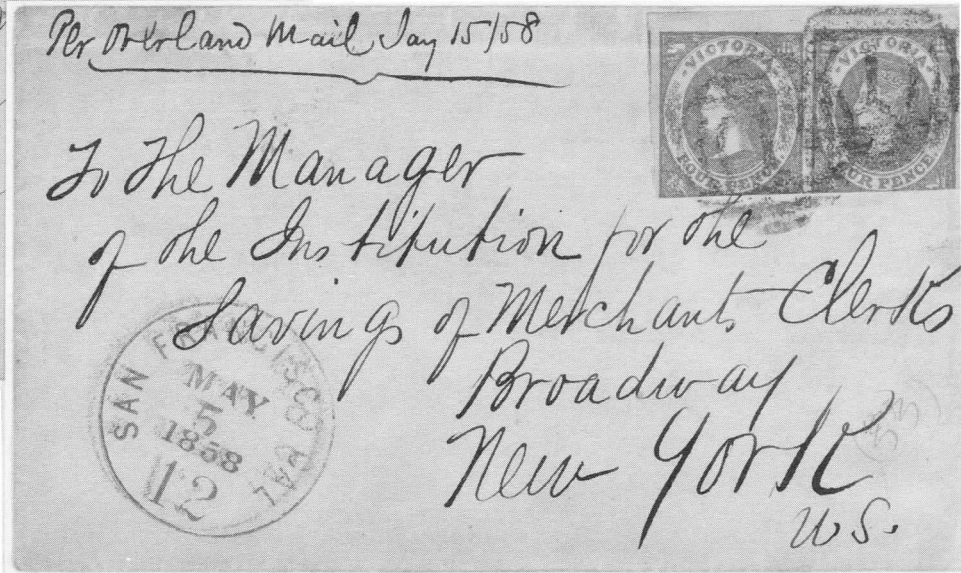 Per Overland Mail Jay 15/58
VICTORIA
FOUR PENCE
VICTORIA
FOUR PENCE
To the Manager
of the Institution for the
Savings of Merchants Clerks
Broadway
New York
U S.
SAN FRANCISCO CAL
MAY
5
1858
12